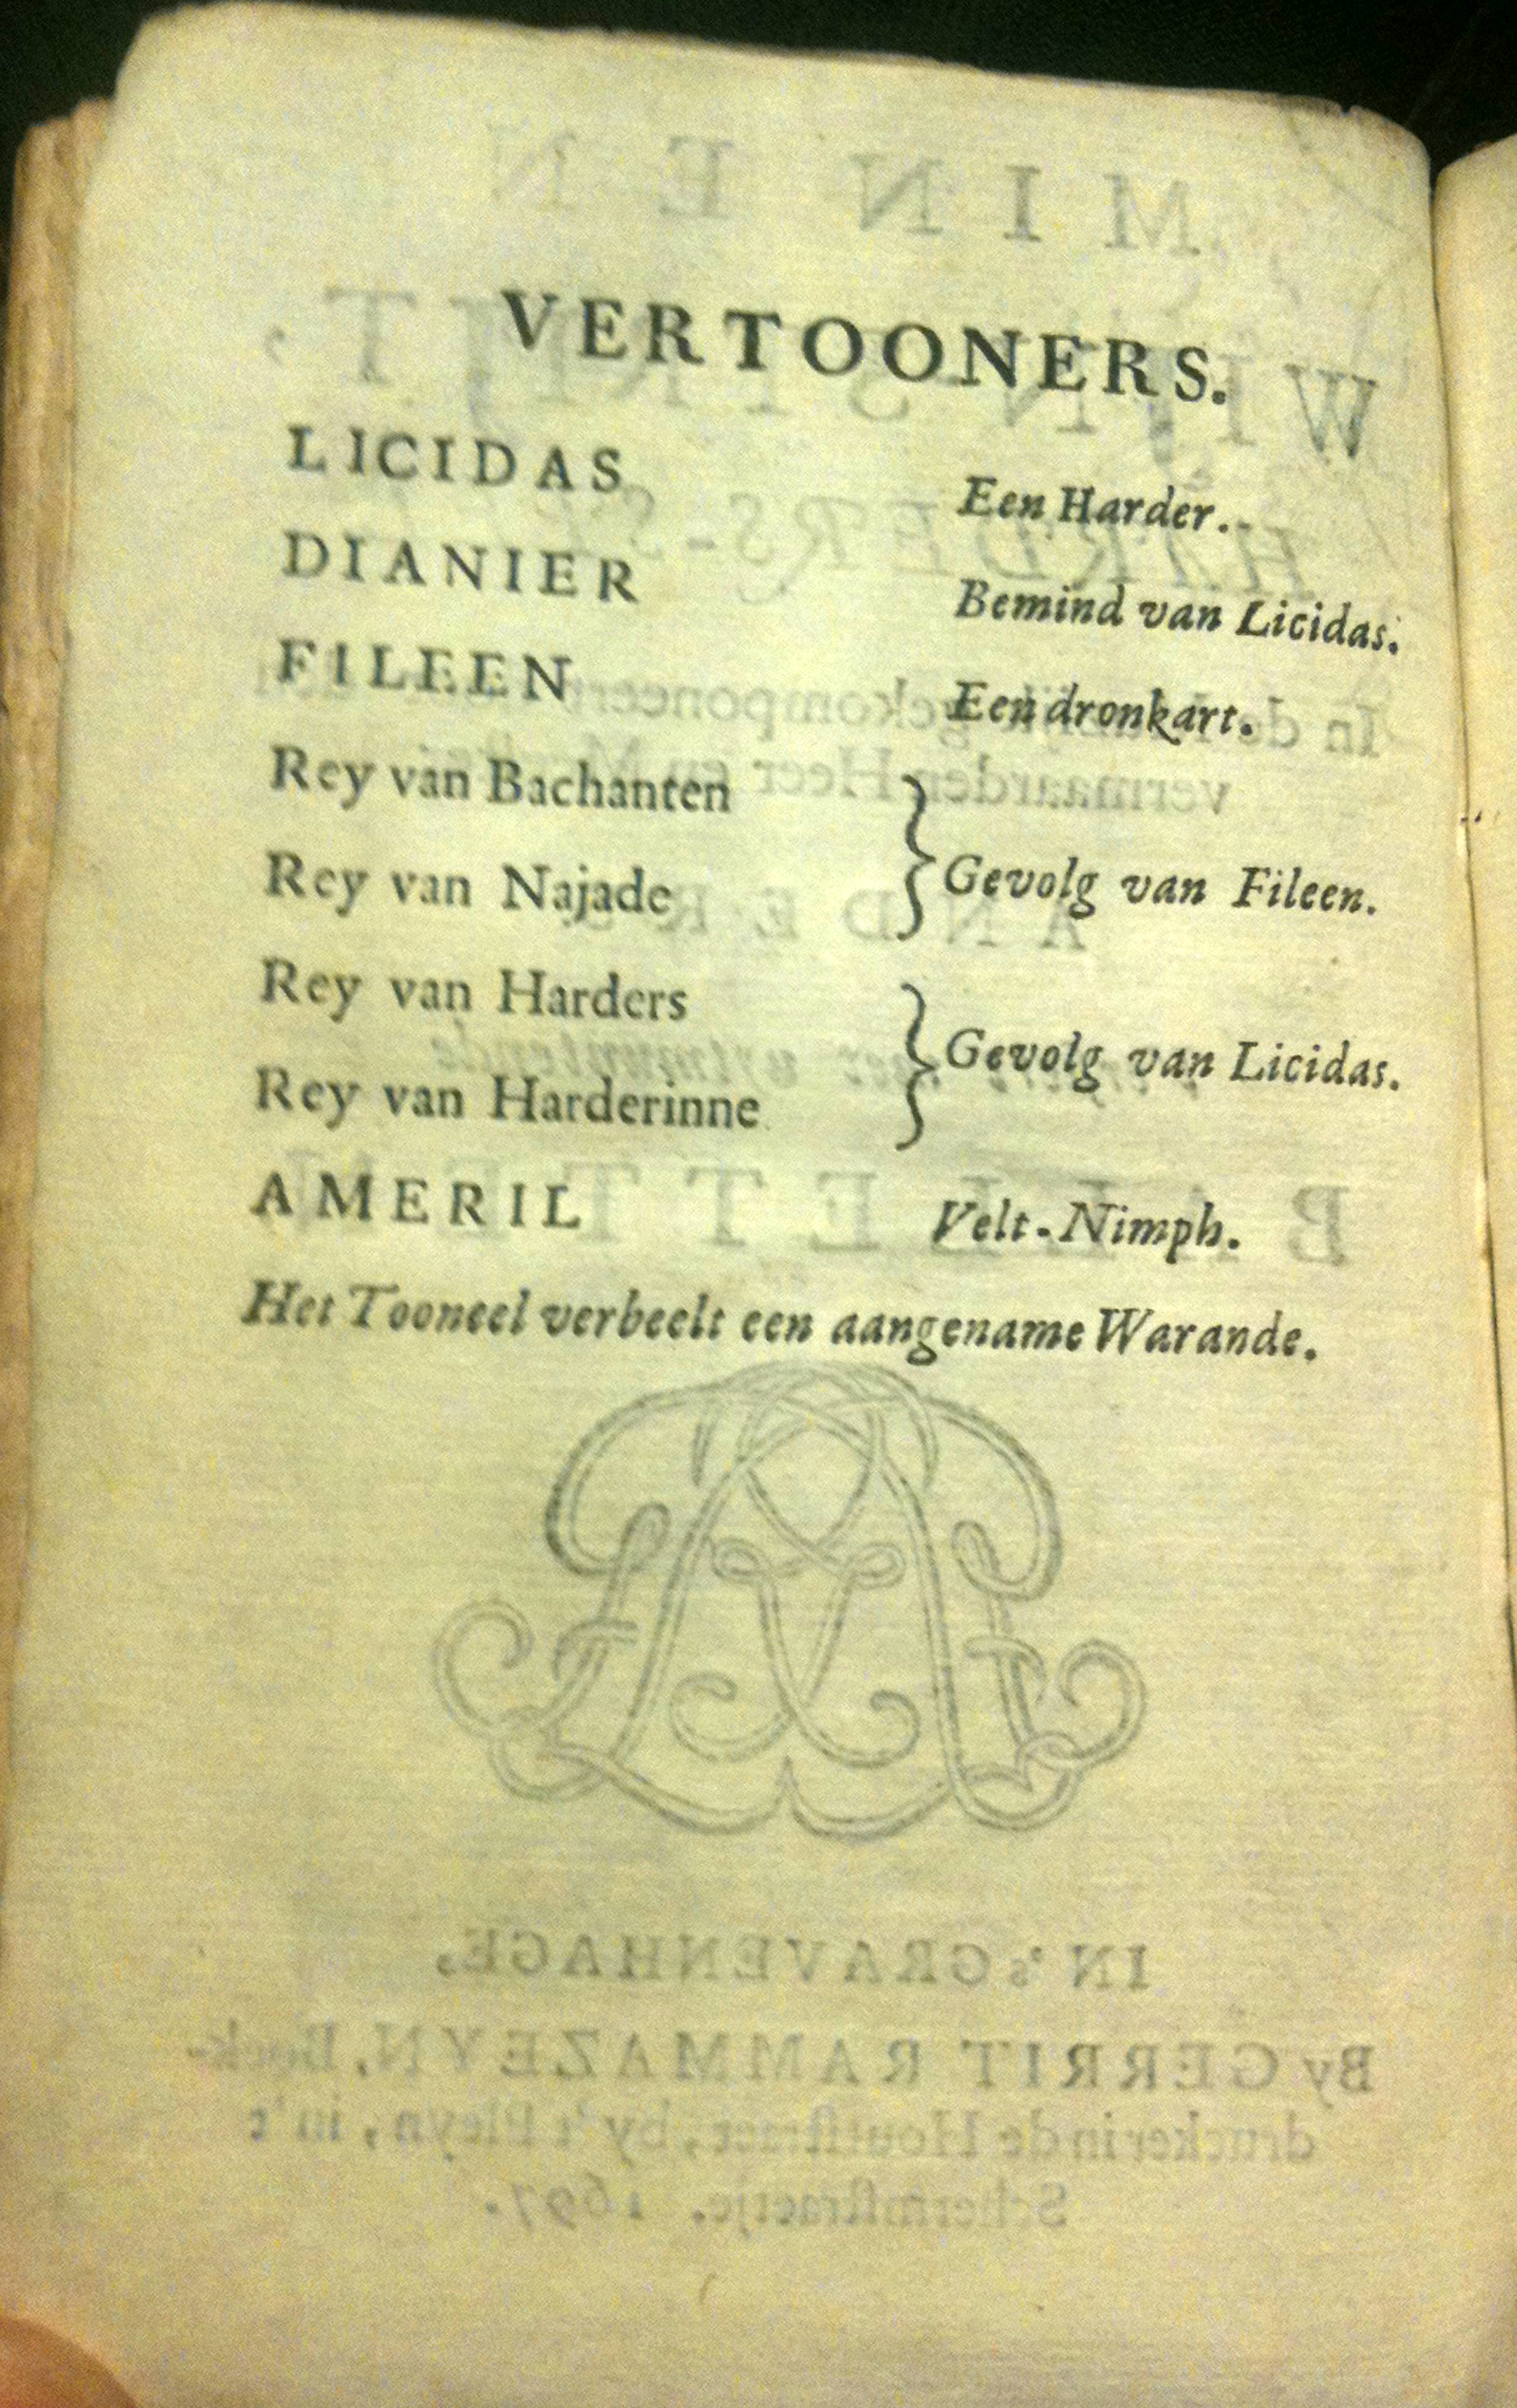 VERTOONERS.
LICIDAS Een Harder.
DIANIER Bemind van Licidas.
FILEEN Een dronkart.
Rey van Bachanten
Rey van Najade } Gevolg van Fileen.
Rey van Harders
Rey van Harderinne } Gevolg van Licidas.
AMERIL Velt-Nimph.
Het Tooneel verbeelt een aangename Warande.